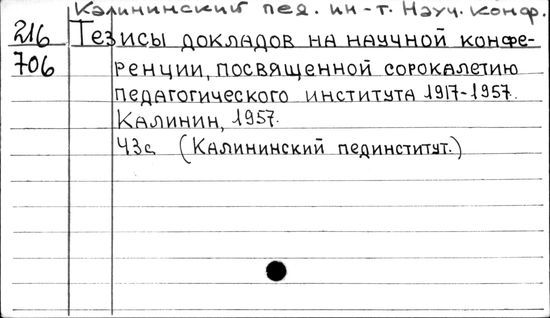 Калининский пед. ин-т. Науч. конф.
216 Тезисы докладов на научной конфе-
706 ренции, посвященной сорокалетию
педагогического института 1917-1957.
Калинин, 1957.
43с (Калининский пединститут.)